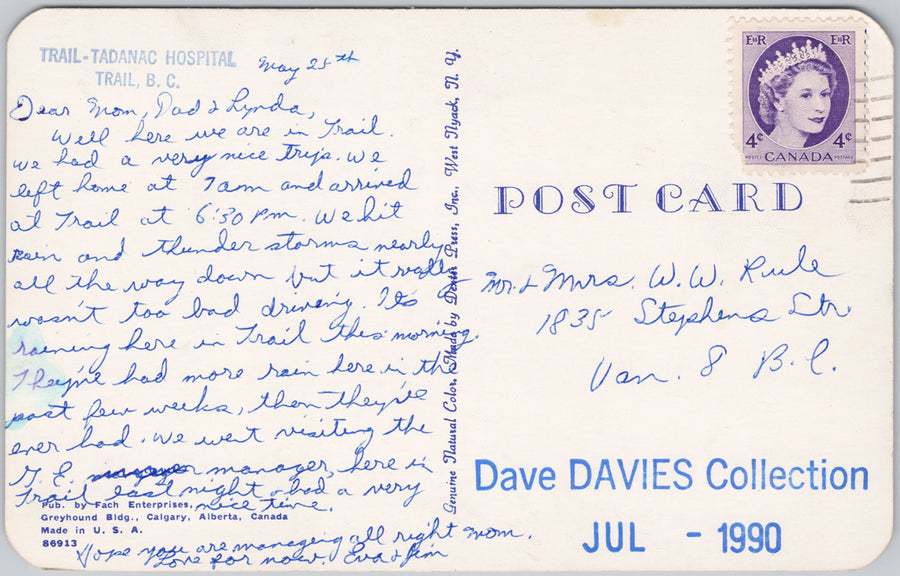 TRAIL-TADANAC HOSPITAL
TRAIL, B. C.
May 25th
Dear Mom, Dad & Lynda,
Well here we are in Trail.
we had a very nice trip. We
left home at 7am and arrived
at Trail at 6:30 P.m. We hit
rain and thunder storms nearly
all the way down but it really
wasn't too bad driving. It's
raining here in Trail this morning.
They've had more rain here in the
past few weeks, then they've
ever had. We went visiting the
G. E. manager, here in
Trail last night & had a very
nice time.
Hope you are managing all right mom.
Love for now. Eva & Jim
Pub. by Fach Enterprises,
Greyhound Bldg., Calgary, Alberta, Canada
Made in U. S. A.
86913
Genuine Natural Color, Made by Dexter Press, Inc., West Nyack, N. Y.
E II R E II R
4¢ 4¢
POSTES CANADA POSTAGE
POST CARD
Mr. & Mrs. W. W. Rule
1835 Stephens Str.
Van. 8 B.C.
Dave DAVIES Collection
JUL - 1990